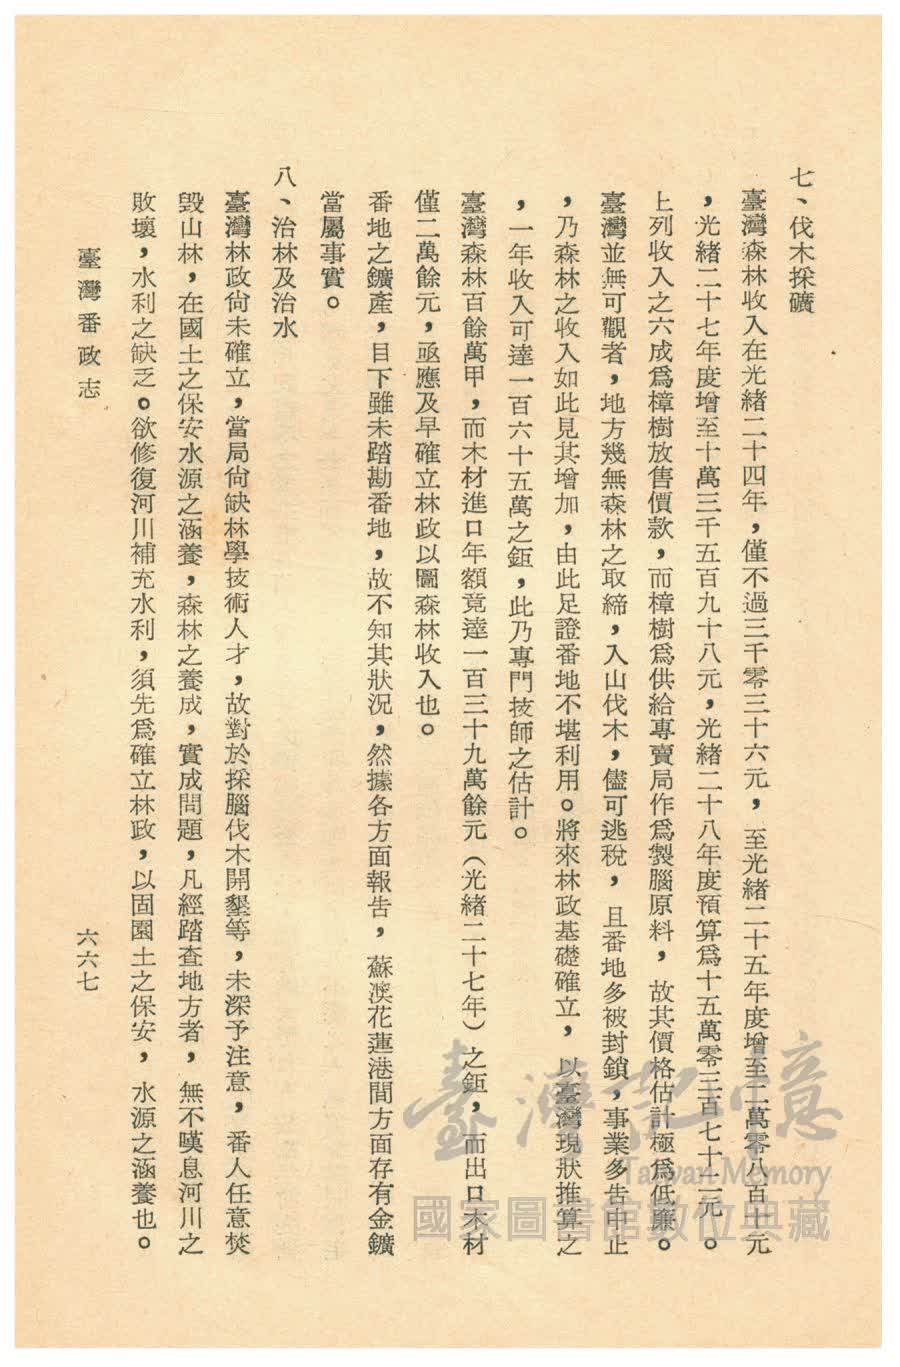 七、伐木採礦
臺灣森林收入在光緒二十四年，僅不過三千零三十六元，至光緒二十五年度增至二萬零八百十元
，光緒二十七年度增至十萬三千五百九十八元，光緒二十八年度預算爲十五萬零三百七十二元。
上列收入之六成爲樟樹放售價款，而樟樹爲供給專賣局作爲製腦原料，故其價格估計極爲低廉。
臺灣並無可觀者，地方幾無森林之取締，入山伐木，儘可逃稅，且番地多被封鎖，事業多告中止
，乃森林之收入如此見其增加，由此足證番地不堪利用。將來林政基礎確立，以臺灣現狀推算之
，一年收入可達一百六十五萬之鉅，此乃專門技師之估計。
臺灣森林百餘萬甲，而木材進口年額竟達一百三十九萬餘元（光緒二十七年）之鉅，而出口木材
僅二萬餘元，亟應及早確立林政以圖森林收入也。
番地之鑛產，目下雖未踏勘番地，故不知其狀況，然據各方面報告，蘇澳花蓮港間方面存有金鑛
當屬事實。
八、治林及治水
臺灣林政尙未確立，當局尙缺林學技術人才，故對於採腦伐木開墾等，未深予注意，番人任意焚
毀山林，在國土之保安水源之涵養，森林之養成，實成問題，凡經踏查地方者，無不嘆息河川之
敗壞，水利之缺乏。欲修復河川補充水利，須先爲確立林政，以固園土之保安，水源之涵養也。
臺灣番政志
六六七
臺灣記憶
Taiwan Memory
國家圖書館數位典藏